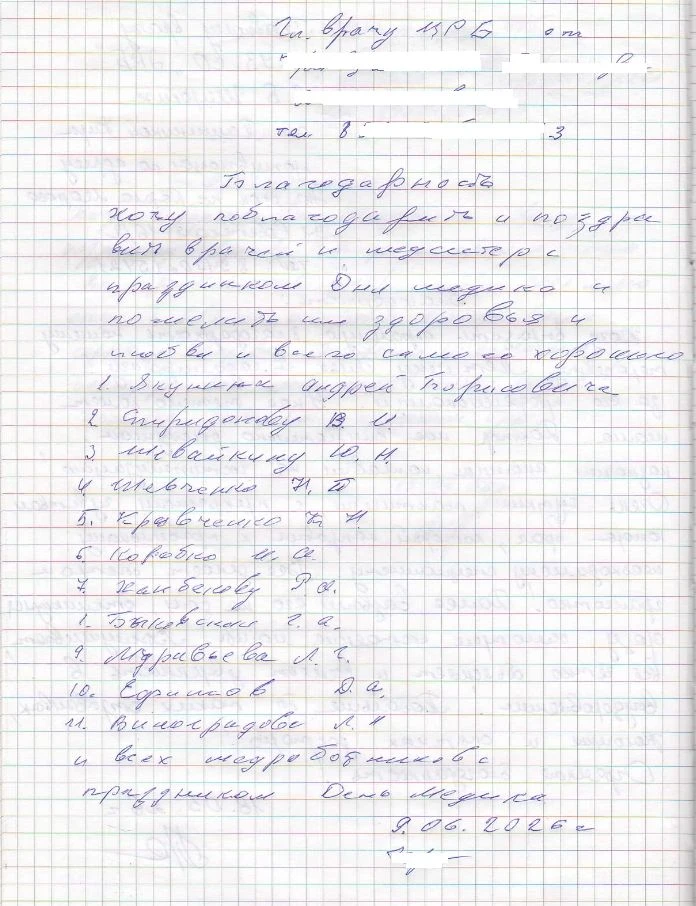 Гл. врачу ЦРБ от
тел 8 3
Благодарность
Хочу поблагодарить и поздра
вить врачей и медсестер с
праздником Дня медика и
пожелать им здоровья и
любви и всего самого хорошего
1. Якушина Андрей Борисовича
2 Спиридонову В. И.
3 Шевайкину Ю. Н.
4. Шевченко Н. П
5. Кравченко К Н
6. Коробко И. А.
7. Ханбекову Р А.
1. Быковская Г. А.
9. Муравьева Л. Г.
10. Ефимов Д. А.
11. Виноградова Л. Н
и всех медработников с
праздником День Медика
9. 06. 2026 г